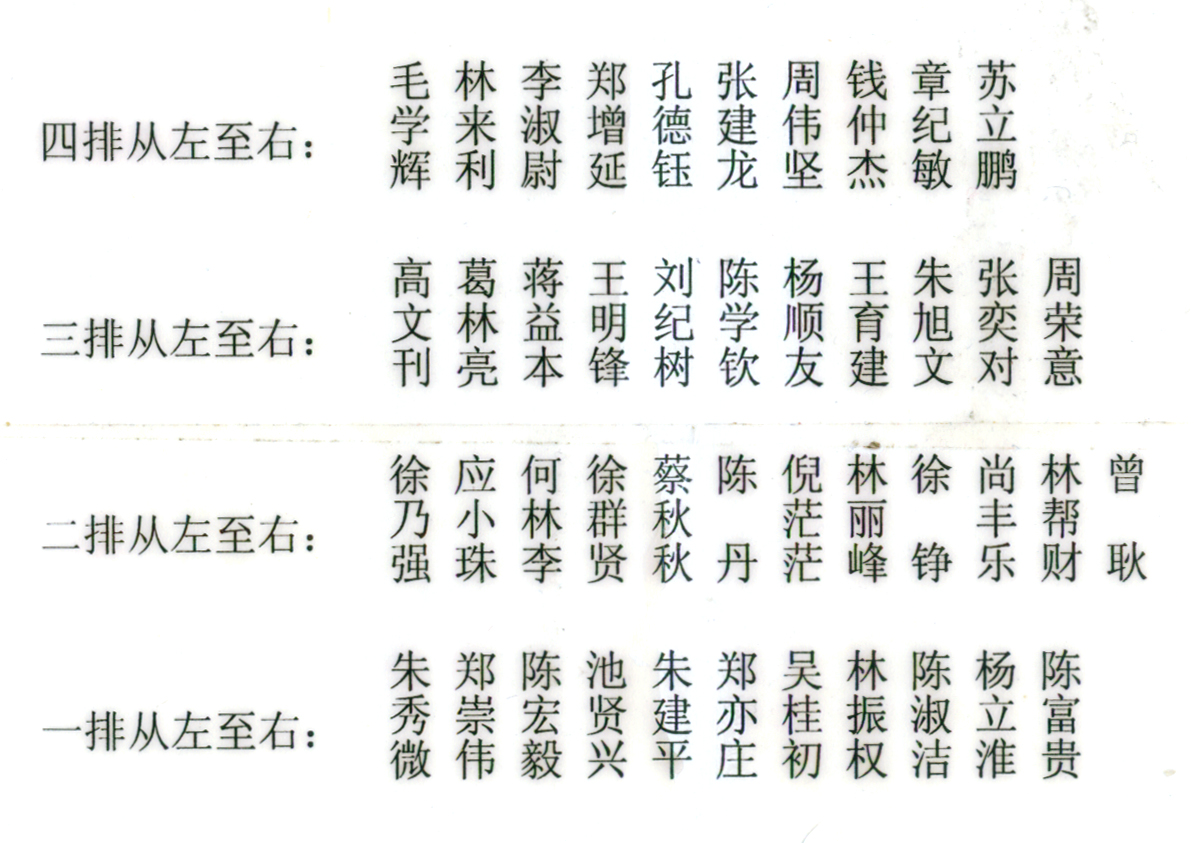 四排从左至右： 毛学辉 林来利 李淑尉 郑增延 孔德钰 张建龙 周伟坚 钱仲杰 章纪敏 苏立鹏
三排从左至右： 高文刊 葛林亮 蒋益本 王明锋 刘纪树 陈学钦 杨顺友 王育建 朱旭文 张奕对 周荣意
二排从左至右： 徐乃强 应小珠 何林李 徐群贤 蔡秋秋 陈丹 倪茫茫 林丽峰 徐铮 尚丰乐 林帮财 曾耿
一排从左至右： 朱秀微 郑崇伟 陈宏毅 池贤兴 朱建平 郑亦庄 吴桂初 林振权 陈淑洁 杨立淮 陈富贵